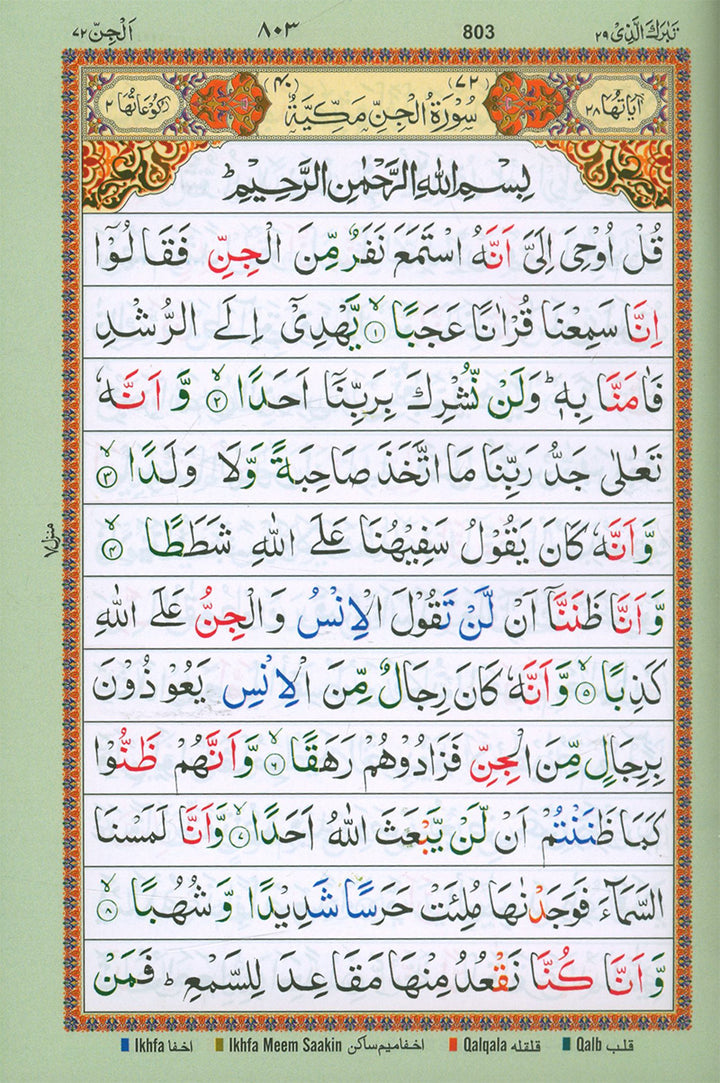 تَبٰرَكَ الَّذِیْ ۲۹ 803 ۸۰۳ اَلْجِنّ ۷۲
اٰیَاتُهَا ۲۸ (۷۲) سُوْرَةُ الْجِنِّ مَكِّیَّةٌ (۴۰) رُكُوْعَاتُهَا ۲
بِسْمِ اللّٰهِ الرَّحْمٰنِ الرَّحِیْمِ
قُلْ اُوْحِیَ اِلَیَّ اَنَّهُ اسْتَمَعَ نَفَرٌ مِّنَ الْجِنِّ فَقَالُوْۤا
اِنَّا سَمِعْنَا قُرْاٰنًا عَجَبًا ۙ۱ یَّهْدِیْۤ اِلَی الرُّشْدِ
فَاٰمَنَّا بِهٖ ؕ وَلَنْ نُّشْرِكَ بِرَبِّنَاۤ اَحَدًا ۙ۲ وَّ اَنَّهٗ
تَعٰلٰی جَدُّ رَبِّنَا مَا اتَّخَذَ صَاحِبَةً وَّلَا وَلَدًا ۙ۳
وَّاَنَّهٗ كَانَ یَقُوْلُ سَفِیْهُنَا عَلَی اللّٰهِ شَطَطًا ۙ۴
وَّ اَنَّا ظَنَنَّاۤ اَنْ لَّنْ تَقُوْلَ الْاِنْسُ وَالْجِنُّ عَلَی اللّٰهِ
كَذِبًا ۙ۵ وَّاَنَّهٗ كَانَ رِجَالٌ مِّنَ الْاِنْسِ یَعُوْذُوْنَ
بِرِجَالٍ مِّنَ الْجِنِّ فَزَادُوْهُمْ رَهَقًا ۙ۶ وَّاَنَّهُمْ ظَنُّوْا
كَمَا ظَنَنْتُمْ اَنْ لَّنْ یَّبْعَثَ اللّٰهُ اَحَدًا ۙ۷ وَّاَنَّا لَمَسْنَا
السَّمَآءَ فَوَجَدْنٰهَا مُلِئَتْ حَرَسًا شَدِیْدًا وَّ شُهُبًا ۙ۸
وَّ اَنَّا كُنَّا نَقْعُدُ مِنْهَا مَقَاعِدَ لِلسَّمْعِ ؕ فَمَنْ
منزل۷
Ikhfa اخفا Ikhfa Meem Saakin اخفا میم ساکن Qalqala قلقله Qalb قلب